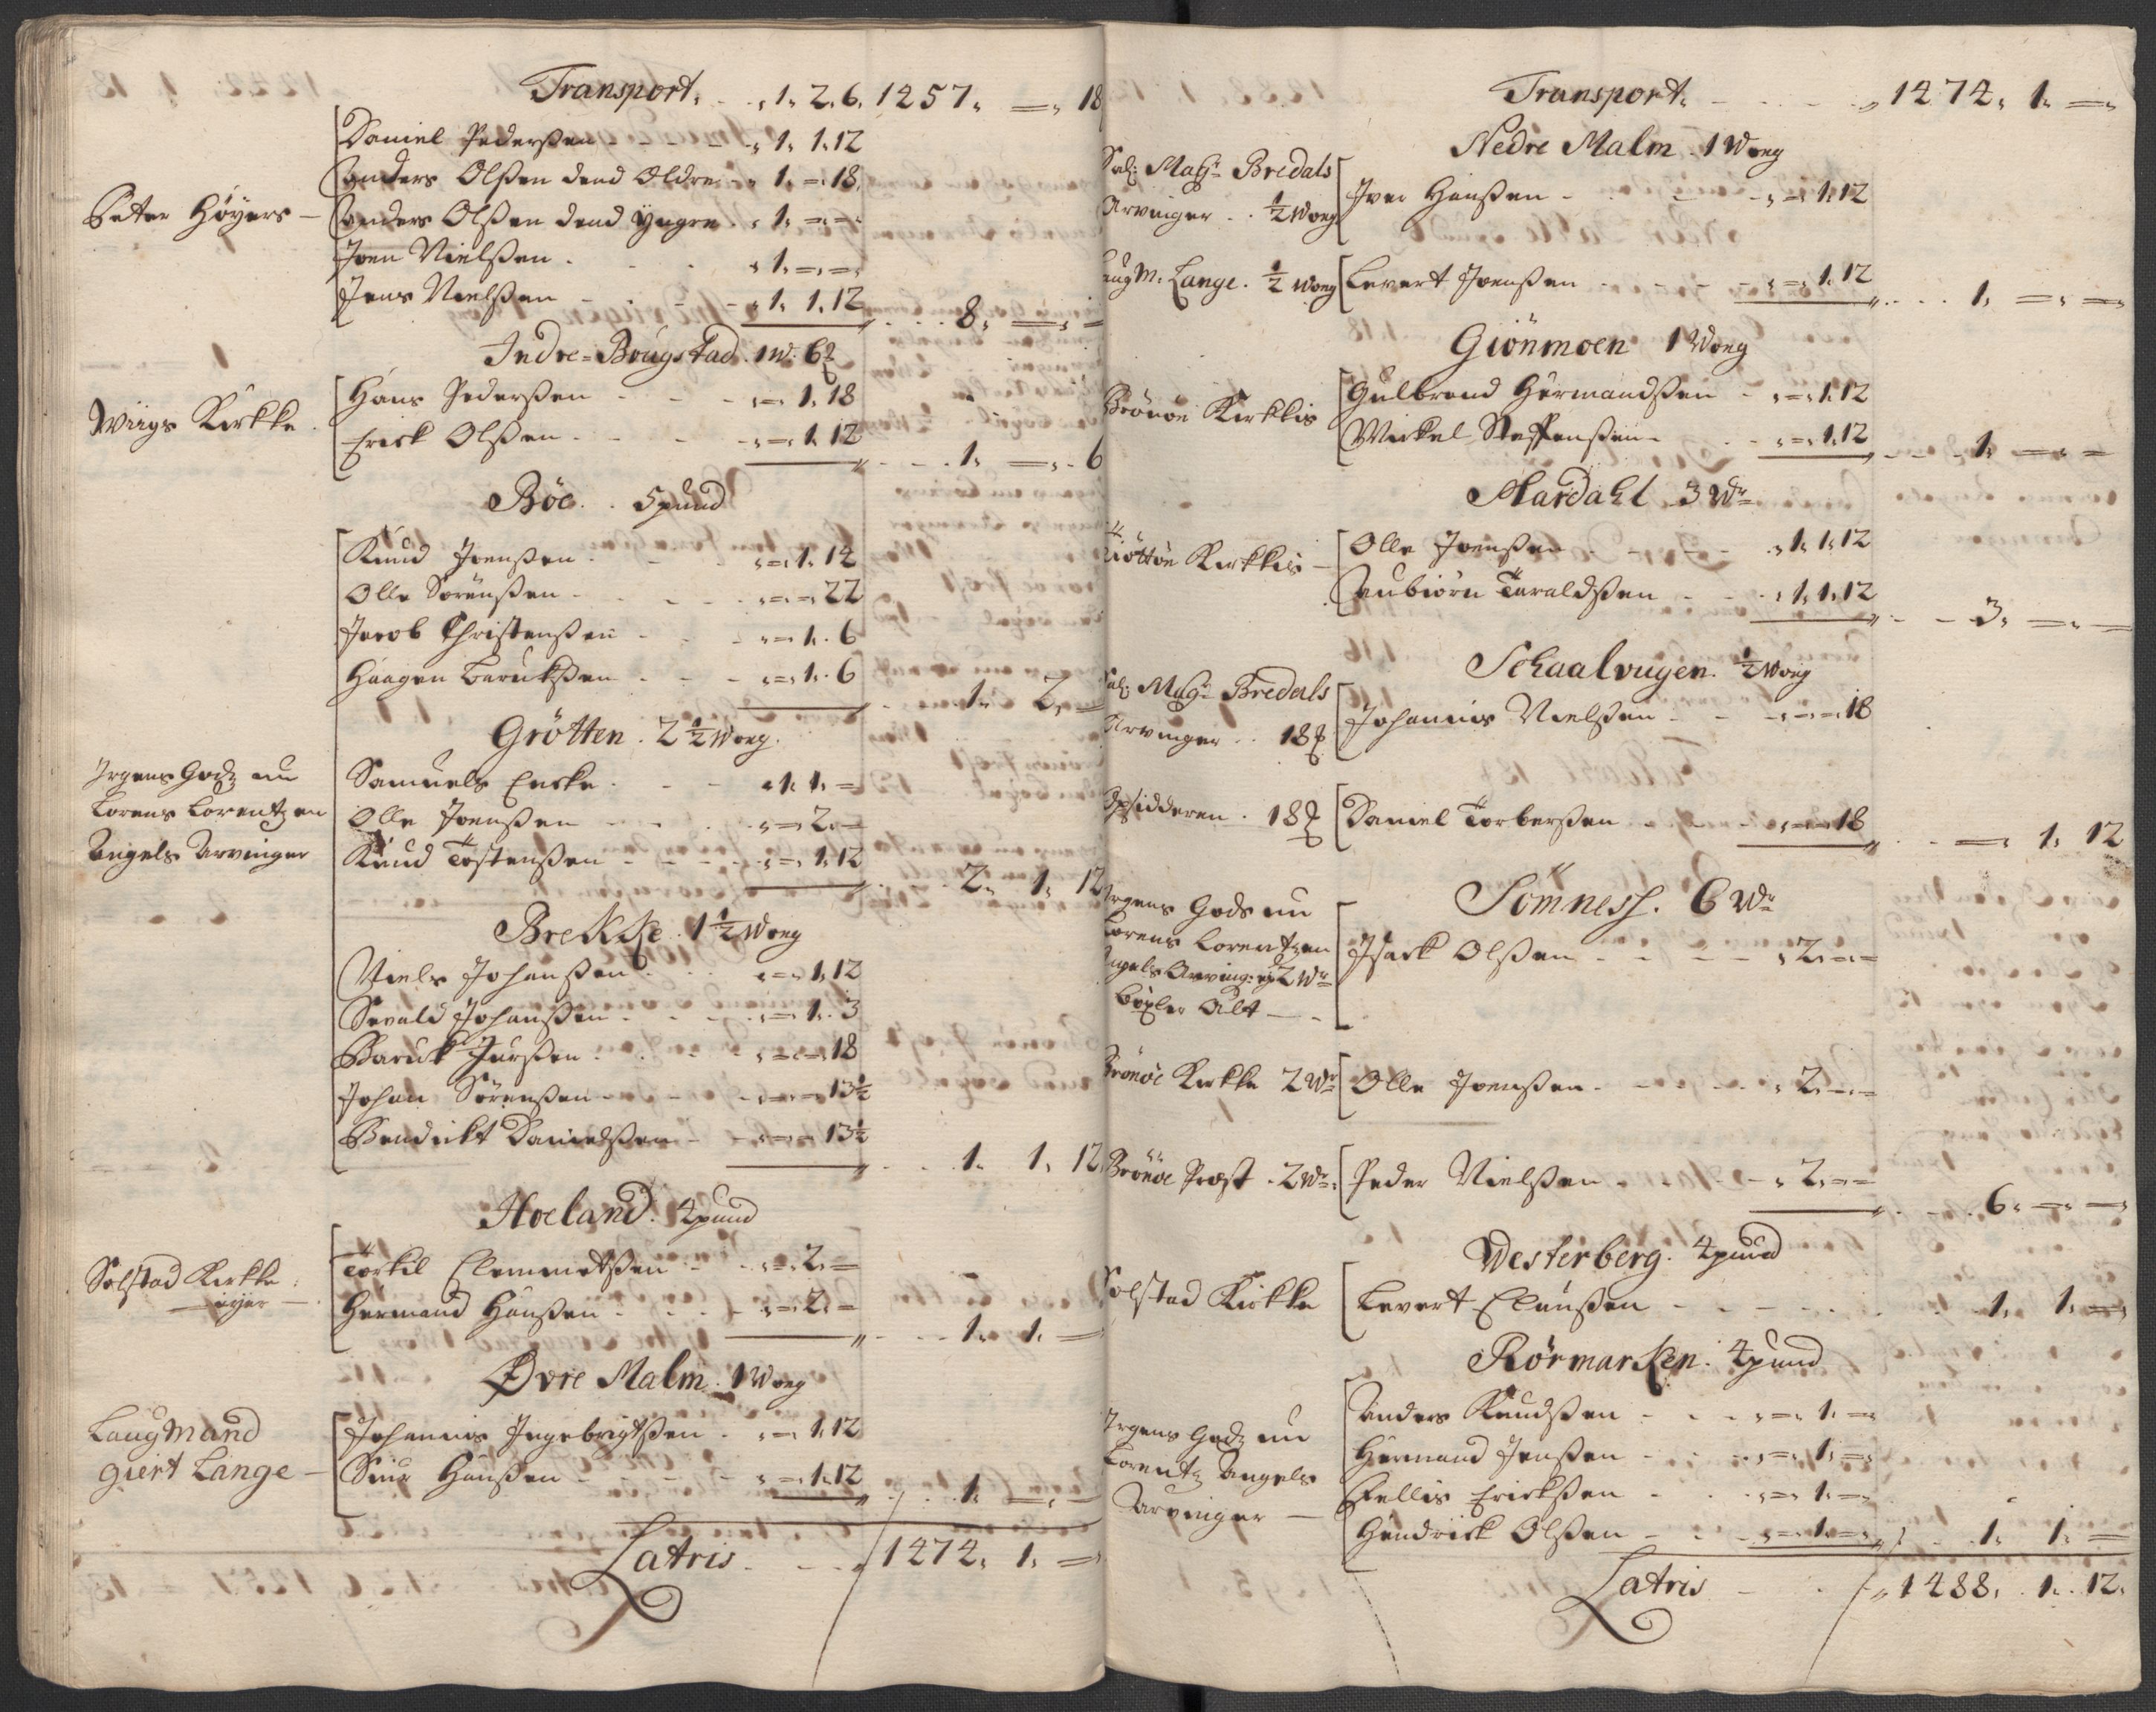 Transport. - . „ 1. 2. 6. 1257. =. 18
Daniel Pedersßen - - - - - „ 1. 1. 12
Anders Olßen dend Ældre - „ 1. =. 18.
Peter Höyers —
Anders Olßen dend Yngre . „ 1. =. =.
Joen Nielßen . . . „ 1. =. =.
Jens Nielßen - - - - „ 1. 1. 12 . . . 8. =. =
Indre = Brugstad. 1 W: 6 ℔
Wiigs Kirkke .
Hans Pederßen - - - „ =. 1. 18
Erick Olßen - - - „ =. 1. 12 - - . 1. =. . 6
Böe . . 5 pund
Knud Joenßen . - - „ =. 1. 12
Olle Sörenßen - . - - . „ =. =. 22
Jacob Christenßen - - - „ =. 1. . 6
Haagen Barukßen - - - „ =. 1. . 6 . . . 1. 2. =
Grötten . 2 ½ Woeg.
Irgens Godz nu
Lorens Lorentzen
Angels Arvinger
Samuels Encke . - - „ 1. 1. =
Olle Joenßen - - - . „ =. 2. =
Knud Tostenßen - - - - „ =. 1. 12 . . . 2. 1. 12
Brekke . 1 ½ Woeg
Niels Johanßen . . . „ =. 1. 12
Sevald Johanßen . - - . „ =. 1. . 3
Baruk Jurßen . . - - „ =. =. 18
Johan Sörenßen - - - - „ =. =. 13½
Bendickt Danielßen - - „ =. =. 13½ - - . 1. 1. 12.
Hoeland . 4 pund
Solstad Kirkke :
— eyer —
Torkil Clemmetßen - - . „ =. 2. =
Hermand Hanßen - . . - „ =. 2. = - - - 1. 1. =
Øvre Malm . 1 Woeg
Laugmand
Giert Lange —
Johannis Ingebrigtßen - . „ =. 1. 12
Siur Hanßen - - - - - „ =. 1. 12 . . . 1. =. =
Latris . - - . 1272. 1. =.
Transport. - . . - . „ 1272. 1. =.
Nedre Malm . 1 Woeg
Sal: Mag: Bredals
Arvinger . . ½ Woeg
Iver Hanßen - . - - „ =. 1. 12
Laug M: Lange . ½ Woeg
Levert Joenßen - - - - - „ =. 1. 12 . - - . 1. =. =.
Giönmoen 1 Woeg
Brönöe Kirkkis
Gulbrand Hermandßen - „ =. 1. 12
Mickel Steffenßen - . - „ =. 1. 12 . - - . 1. =. =
Aardahl 3 Wr
Tiöttöe Kirkkis —
Olle Joenßen - - - - . „ 1. 1. 12
Aubiörn Taraldßen - - . „ 1. 1. 12 . - - 3. =. =
Schaalvugen . ½ Woeg
Sal: Mag: Bredals
Arvinger . . 18 ℔
Johannis Nielßen - - - „ =. =. 18
Opsidderen . 18 ℔
Daniel Torberßen - - - - „ =. =. 18 . . - =. 1. 12
Sömness . 6 Wr
Irgens Gods nu
Lorens Lorentzen
Angels Arving: 2 Wr
böxler Alt — .
Isack Olßen - - - - - „ 2. =. =
Brönöe Kirkke 2 Wr
Olle Joenßen . - - - - . „ 2. =. =
Brönöe Præst . 2 Wr:
Peder Nielßen . - - . - - „ 2. =. = . - . 6. =. =.
Westerberg . 4 pund
Solstad Kirkke
Levert Clausßen - - - - . . . . 1. 1. =.
Rörmarken . 4 pund
Irgens Godz nu
Lorentz Angels
Arvinger —
Anders Knudßen - . - „ =. 1. =
Hermand Jenßen - - . . „ =. 1. =.
Pellis Erickßen - . - „ =. 1. =.
Hendrick Olßen - - - „ =. 1. =. . . . 1. 1. =
Latris - . . „ 1288. . 1. . 12.